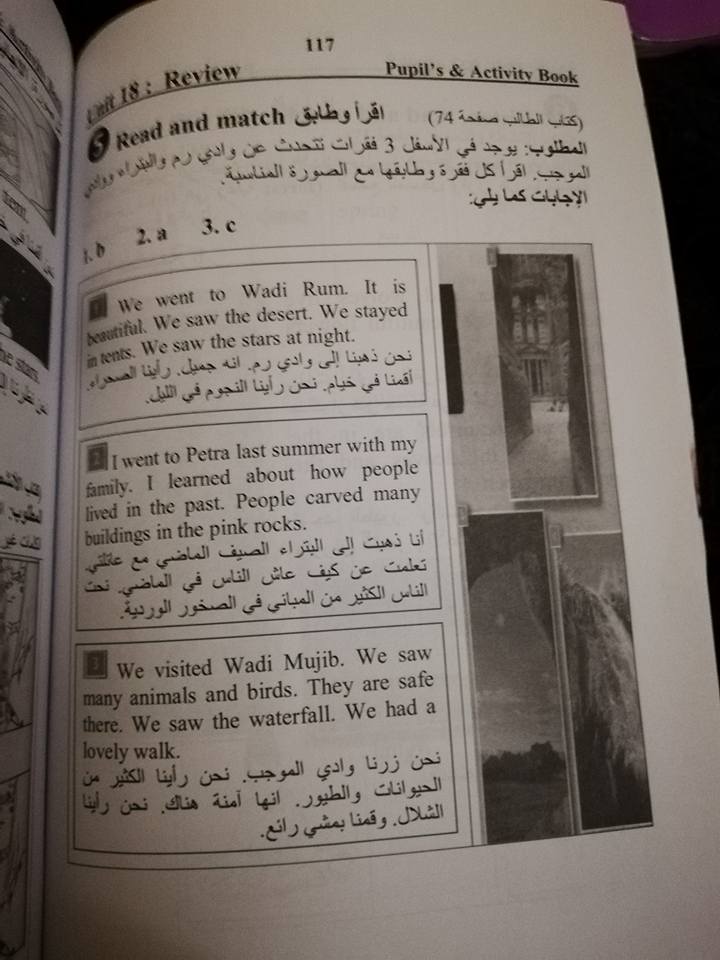 117
Unit 18 : Review
Pupil's & Activity Book
5 Read and match اقرأ وطابق
(كتاب الطالب صفحة 74)
المطلوب: يوجد في الأسفل 3 فقرات تتحدث عن وادي رم والبتراء ووادي
الموجب. اقرأ كل فقرة وطابقها مع الصورة المناسبة.
الإجابات كما يلي:
1. b 2. a 3. c
1 We went to Wadi Rum. It is
beautiful. We saw the desert. We stayed
in tents. We saw the stars at night.
نحن ذهبنا إلى وادي رم. انه جميل. رأينا الصحراء.
أقمنا في خيام. نحن رأينا النجوم في الليل.
2 I went to Petra last summer with my
family. I learned about how people
lived in the past. People carved many
buildings in the pink rocks.
أنا ذهبت إلى البتراء الصيف الماضي مع عائلتي.
تعلمت عن كيف عاش الناس في الماضي. نحت
الناس الكثير من المباني في الصخور الوردية.
3 We visited Wadi Mujib. We saw
many animals and birds. They are safe
there. We saw the waterfall. We had a
lovely walk.
نحن زرنا وادي الموجب. نحن رأينا الكثير من
الحيوانات والطيور. انها آمنة هناك. نحن رأينا
الشلال. وقمنا بمشي رائع.
tent.
he stars